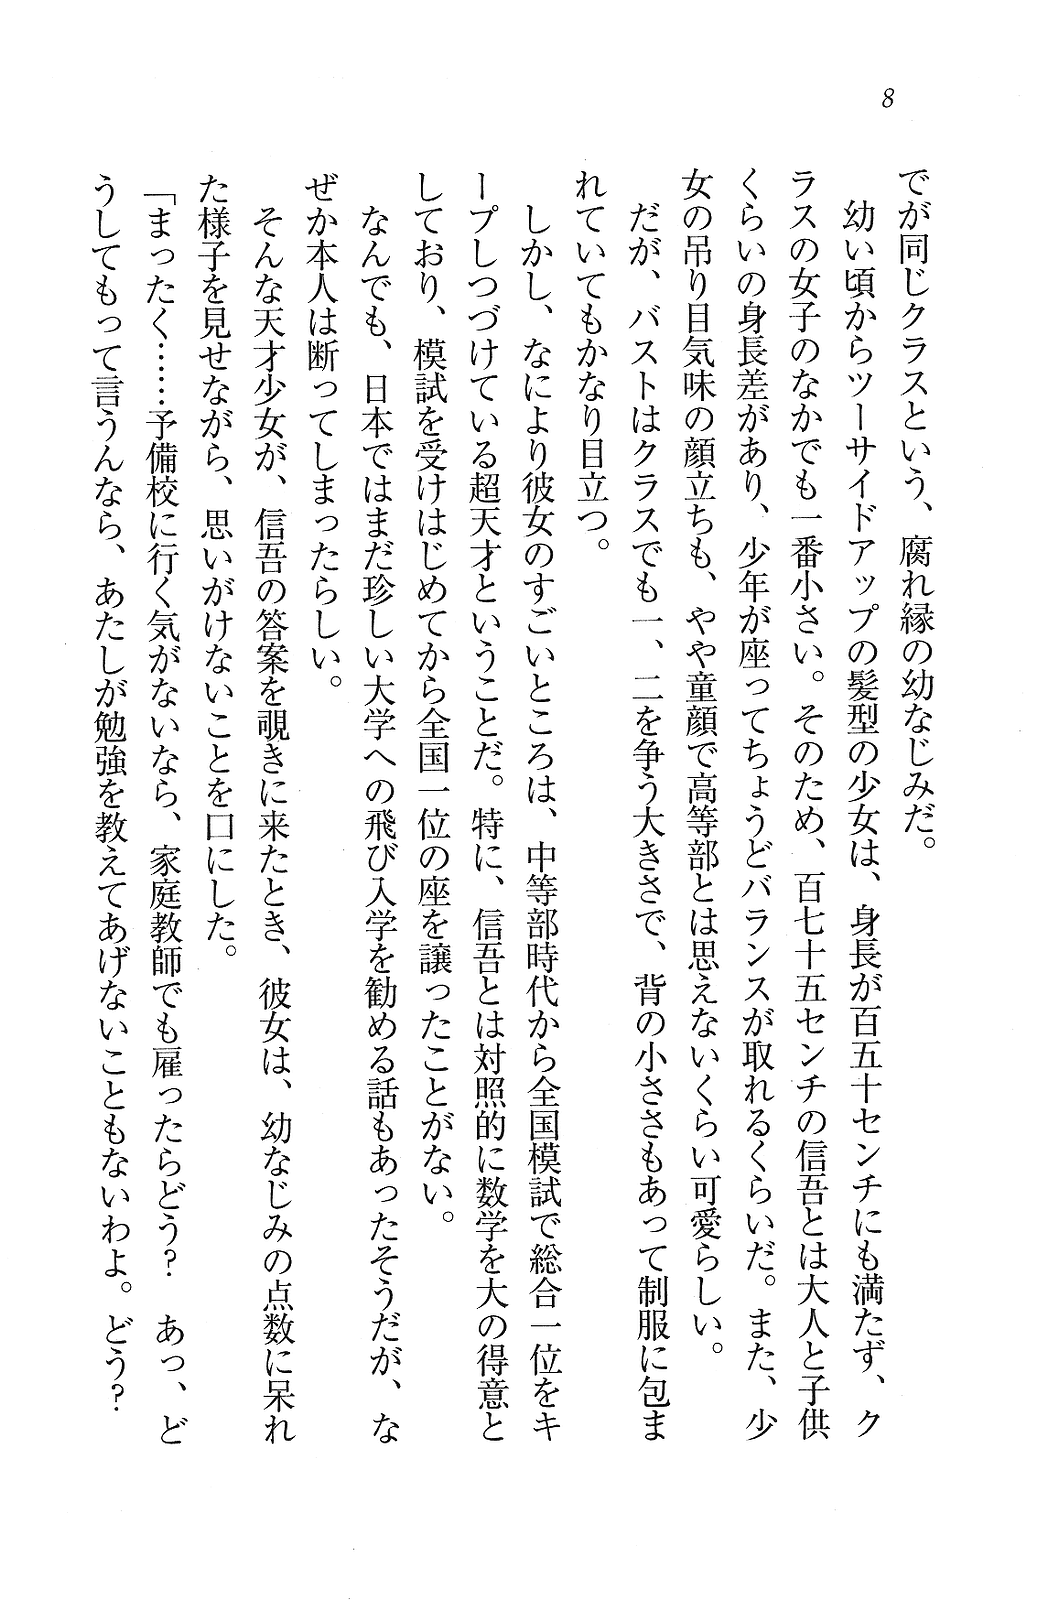 8
でが同じクラスという、腐れ縁の幼なじみだ。
　幼い頃からツーサイドアップの髪型の少女は、身長が百五十センチにも満たず、ク
ラスの女子のなかでも一番小さい。そのため、百七十五センチの信吾とは大人と子供
くらいの身長差があり、少年が座ってちょうどバランスが取れるくらいだ。また、少
女の吊り目気味の顔立ちも、やや童顔で高等部とは思えないくらい可愛らしい。
　だが、バストはクラスでも一、二を争う大きさで、背の小ささもあって制服に包ま
れていてもかなり目立つ。
　しかし、なにより彼女のすごいところは、中等部時代から全国模試で総合一位をキ
ープしつづけている超天才ということだ。特に、信吾とは対照的に数学を大の得意と
しており、模試を受けはじめてから全国一位の座を譲ったことがない。
　なんでも、日本ではまだ珍しい大学への飛び入学を勧める話もあったそうだが、な
ぜか本人は断ってしまったらしい。
　そんな天才少女が、信吾の答案を覗きに来たとき、彼女は、幼なじみの点数に呆れ
た様子を見せながら、思いがけないことを口にした。
「まったく……予備校に行く気がないなら、家庭教師でも雇ったらどう？　あっ、ど
うしてもって言うんなら、あたしが勉強を教えてあげないこともないわよ。どう？